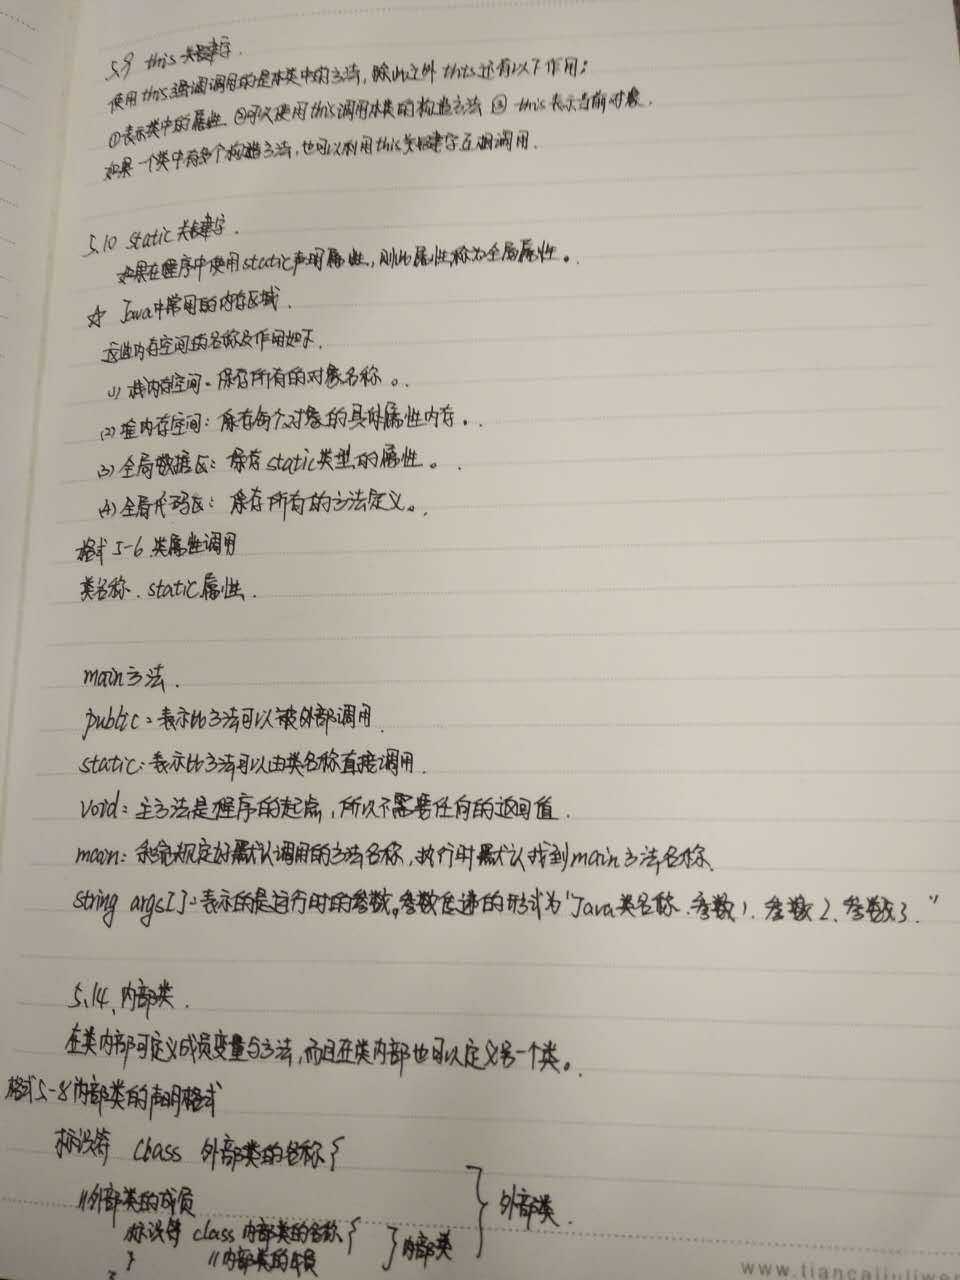 5.9 this关键字.
使用this强调调用的是本类中的方法,除此之外this还有以下作用:
①表示类中的属性 ②可以使用this调用本类的构造方法 ③ this表示当前对象.
如果一个类中有多个构造方法,也可以利用this关键字互相调用.
5.10 static关键字.
如果在程序中使用static声明属性,则此属性称为全局属性。.
☆ Java中常用的内存区域.
这些内存空间的名称及作用如下.
(1) 栈内存空间:保存所有的对象名称。.
(2) 堆内存空间:保存每个对象的具体属性内存。.
(3) 全局数据区:保存static类型的属性。.
(4) 全局代码区:保存所有的方法定义。.
格式5-6 类属性调用
类名称.static属性.
main方法.
public:表示此方法可以被外部调用.
static:表示此方法可以由类名称直接调用.
void:主方法是程序的起点,所以不需要任何的返回值.
main:系统规定好默认调用的方法名称,执行时默认找到main方法名称.
string args[]:表示的是运行时的参数。参数传递的形式为"Java类名称.参数1.参数2.参数3."
5.14.内部类.
在类内部可定义成员变量与方法,而且在类内部也可以定义另一个类。.
格式5-8内部类的声明格式
标识符 class 外部类的名称{
//外部类的成员
标识符 class 内部类的名称{
//内部类的成员
}
}
内部类
外部类.
www.tiancaijuliwe